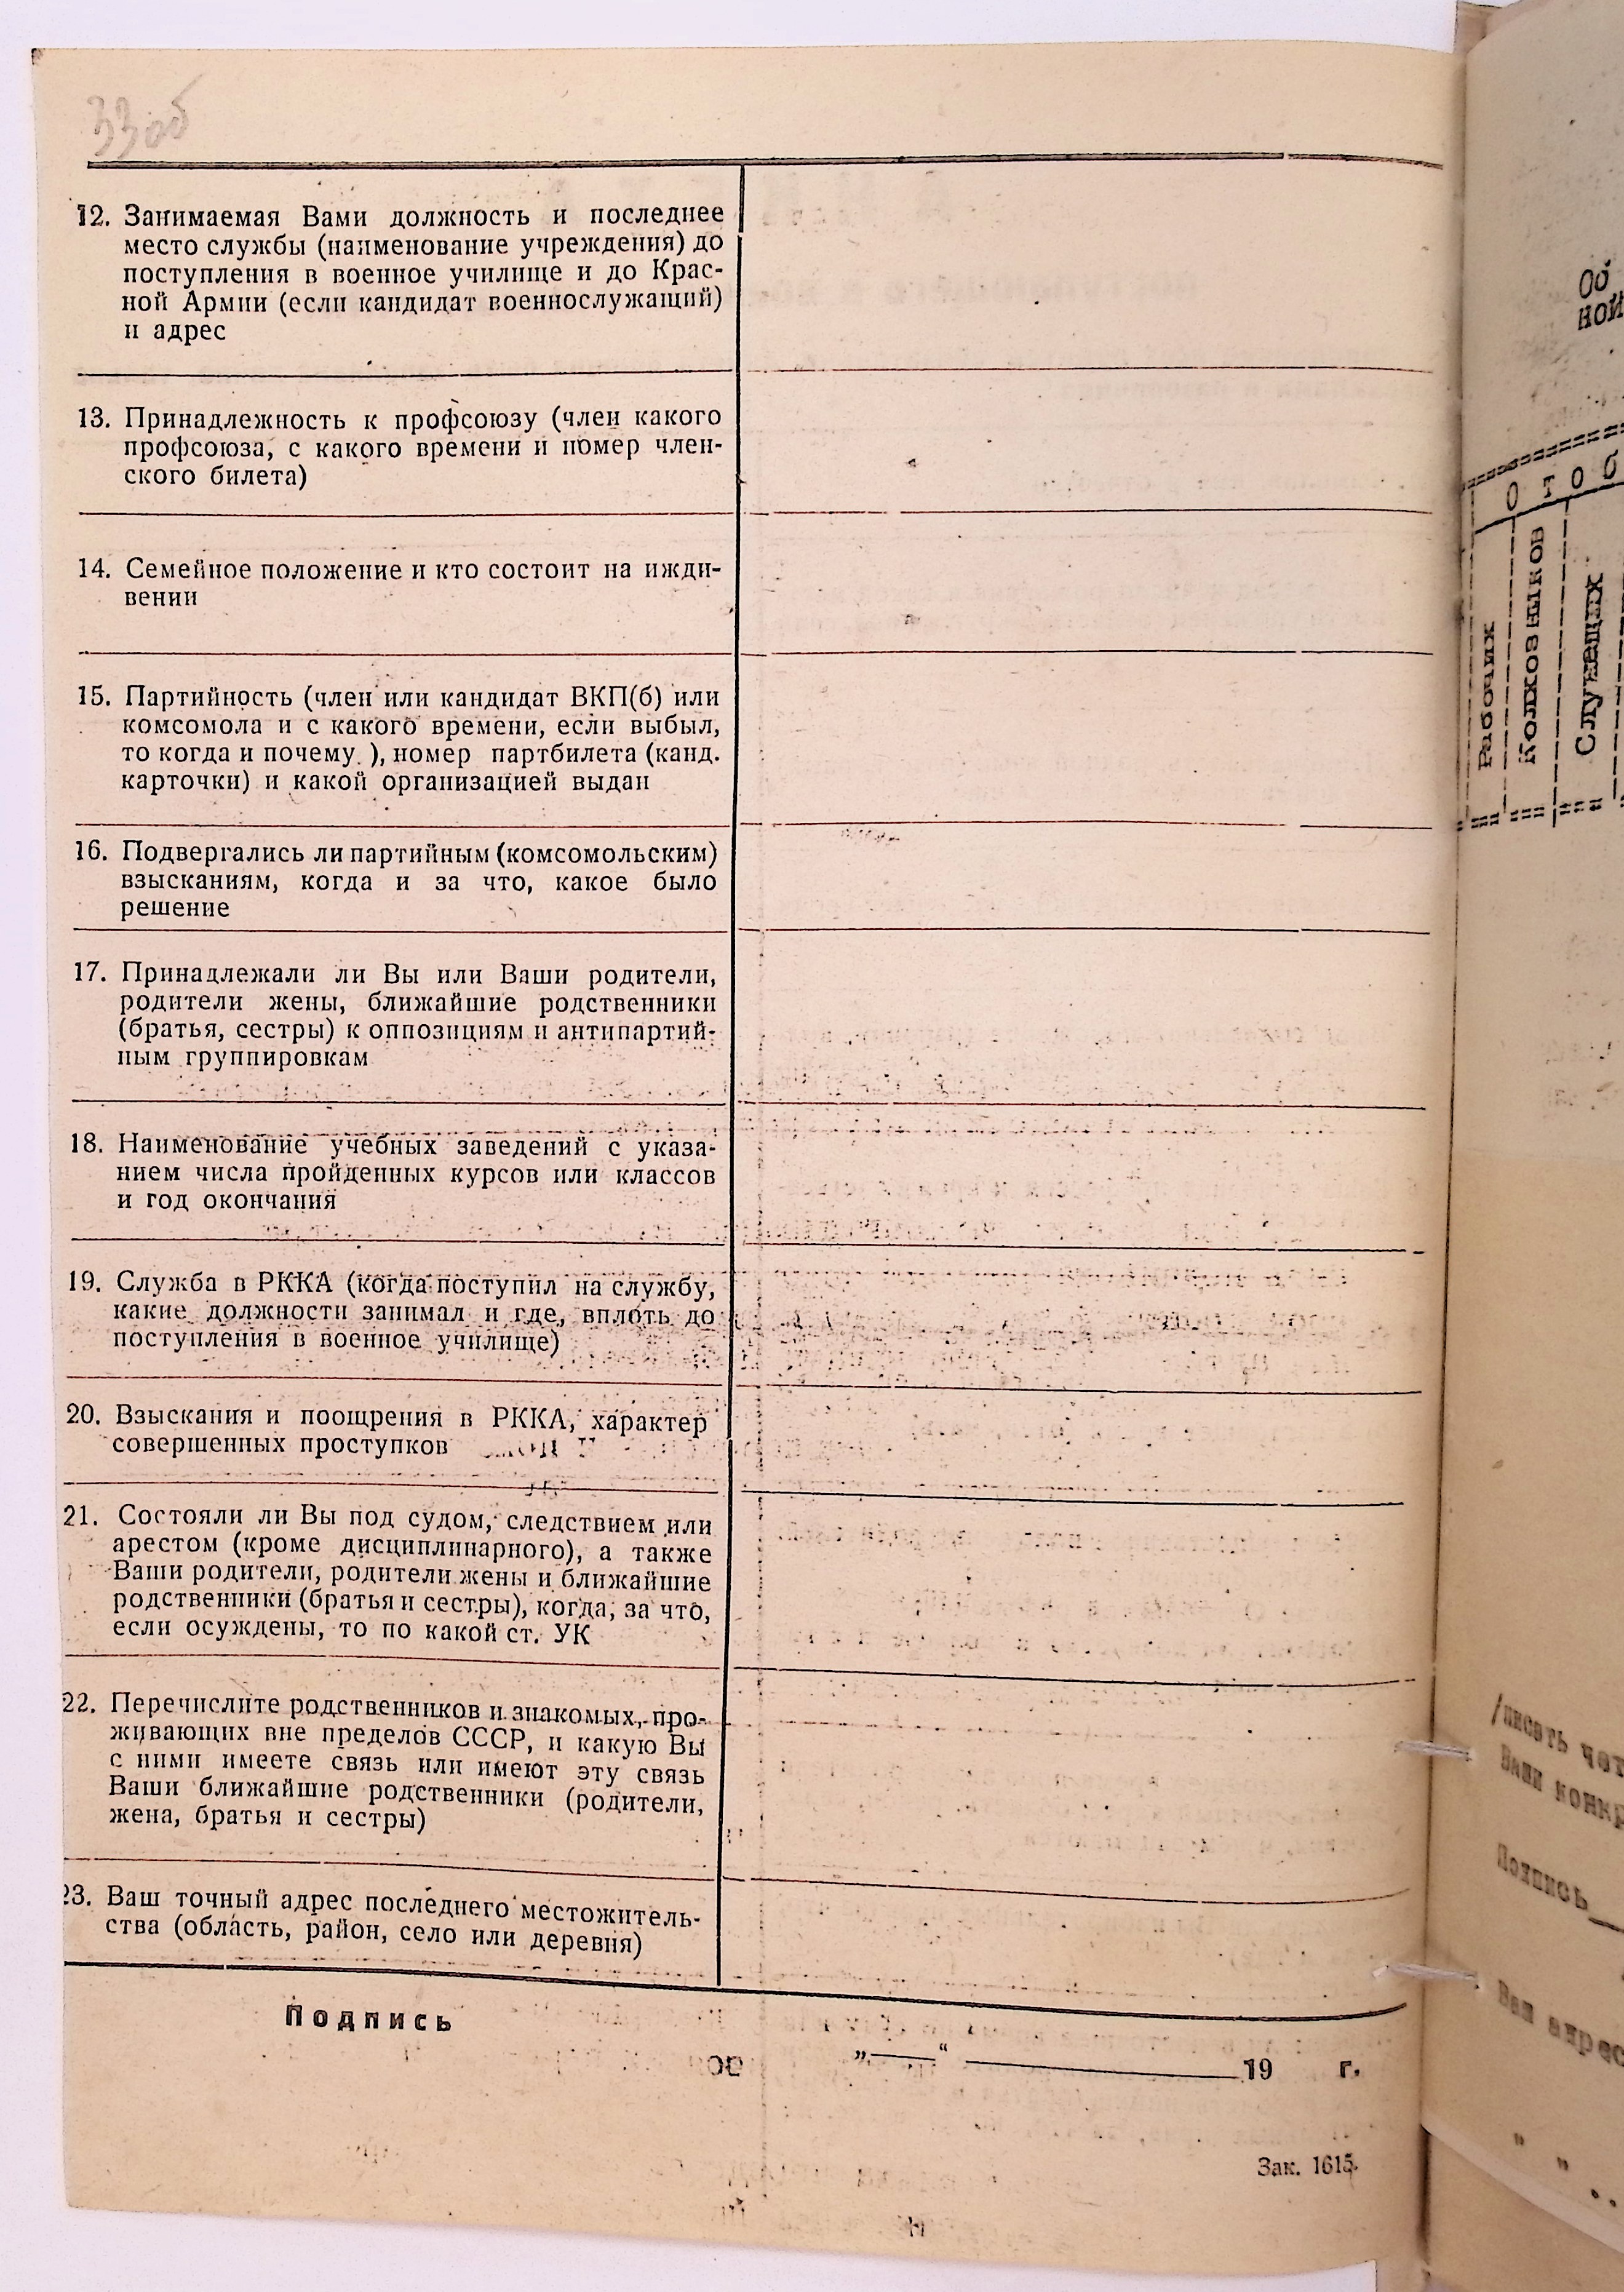 33об
12. Занимаемая Вами должность и последнее
место службы (наименование учреждения) до
поступления в военное училище и до Крас-
ной Армии (если кандидат военнослужащий)
и адрес
13. Принадлежность к профсоюзу (член какого
профсоюза, с какого времени и номер член-
ского билета)
14. Семейное положение и кто состоит на ижди-
вении
15. Партийность (член или кандидат ВКП(б) или
комсомола и с какого времени, если выбыл,
то когда и почему ), номер партбилета (канд.
карточки) и какой организацией выдан
16. Подвергались ли партийным (комсомольским)
взысканиям, когда и за что, какое было
решение
17. Принадлежали ли Вы или Ваши родители,
родители жены, ближайшие родственники
(братья, сестры) к оппозициям и антипартий-
ным группировкам
18. Наименование учебных заведений с указа-
нием числа пройденных курсов или классов
и год окончания
19. Служба в РККА (когда поступил на службу,
какие должности занимал и где, вплоть до
поступления в военное училище)
20. Взыскания и поощрения в РККА, характер
совершенных проступков
21. Состояли ли Вы под судом, следствием или
арестом (кроме дисциплинарного), а также
Ваши родители, родители жены и ближайшие
родственники (братья и сестры), когда, за что,
если осуждены, то по какой ст. УК
22. Перечислите родственников и знакомых, про-
живающих вне пределов СССР, и какую Вы
с ними имеете связь или имеют эту связь
Ваши ближайшие родственники (родители,
жена, братья и сестры)
23. Ваш точный адрес последнего местожитель-
ства (область, район, село или деревня)
Подпись
„___“ ____________19 г.
Зак. 1615.
Об
ной
Отоб
Рабочих
Колхозников
Служащих
/писать чет
Ваши конкр
Подпись
Ваш адрес